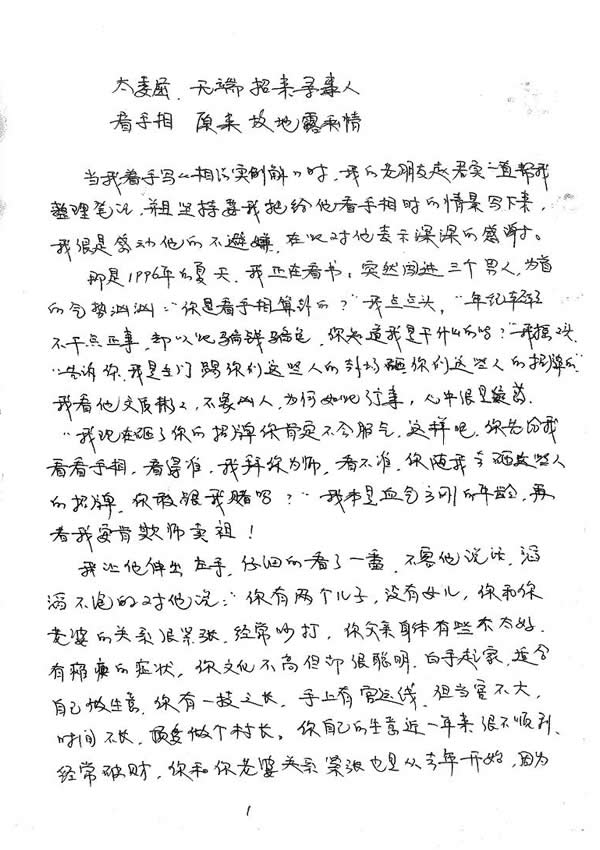 太委屈、无端招来寻事人
看手相 原来故地露私情
当我着手写《相法实例解》时，我的老朋友赵君实一直帮我
整理笔记，并且坚持要我把给他看手相时的情景写下来，
我很是感动他的不避嫌，在此对他表示深深的感谢。
那是1996年的夏天，我正在看书，突然闯进三个男人，为首
的气势汹汹："你是看手相算卦的？"我点点头，"年纪轻轻
不干点正事，却以此骗钱骗色，你知道我是干什么的吗？"我摇头
"告诉你，我是专门踢你们这些人的场砸你们这些人的招牌的"
我看他文质彬彬，不象凶人，为何如此行事，心中很是疑惑
"我现在砸了你的招牌你肯定不会服气，这样吧，你若给我
看看手相，看得准，我拜你为师，看不准，你随我去砸这些人
的招牌，你敢跟我赌吗？"我本是血气方刚的年龄，再
者我岂肯欺师卖祖！
我让他伸出左手，仔细的看了一番，不要他说话，滔
滔不绝的对他说："你有两个儿子，没有女儿，你和你
老婆的关系很紧张，经常吵打，你父亲身体有些不太好，
有瘫痪的症状，你文化不高但却很聪明，白手起家，适合
自己做生意，你有一技之长，手上有官运线，但当官不大，
时间不长，顶多做个村长。你自己的生意近一年来很不顺利、
经常破财，你和你老婆关系紧张也是从去年开始，因为
1